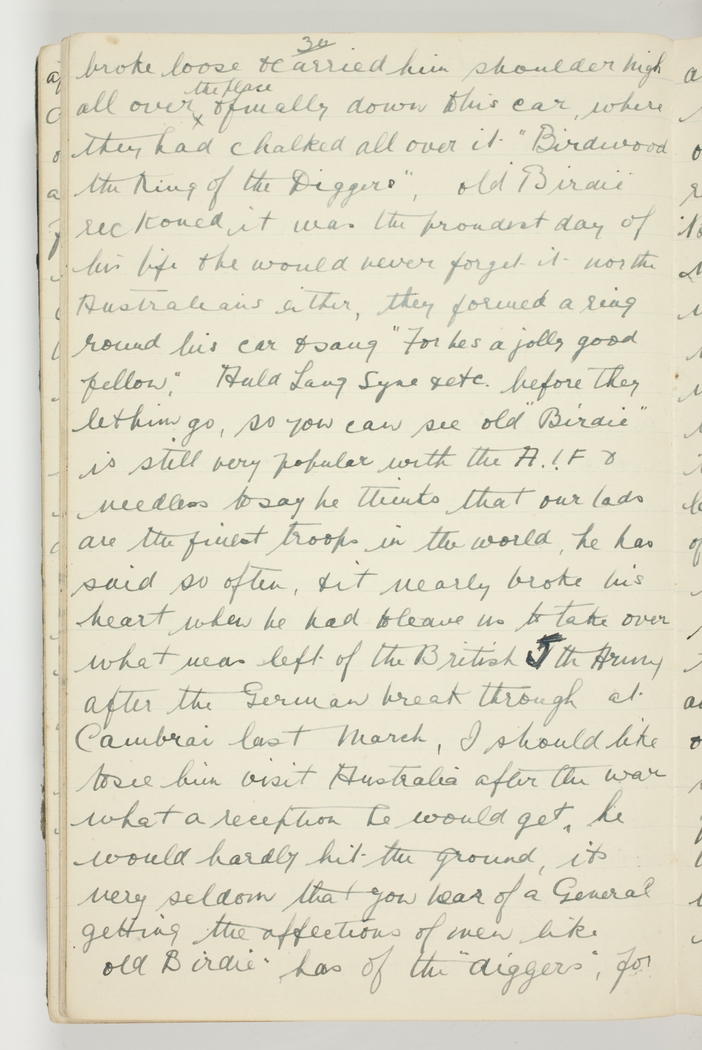 30
broke loose & carried him shoulder high
the place
all over x & finally down to his car, where
they had chalked all over it "Birdwood
the King of the Diggers", old Birdie
reckoned it was the proudest day of
his life & he would never forget it nor the
Australians either, they formed a ring
round his car & sang "For hes a jolly good
fellow", Auld Lang Syne & etc. before they
let him go, so you can see old "Birdie"
is still very popular with the A.I.F &
needless to say he thinks that our lads
are the finest troops in the world, he has
said so often, & it nearly broke his
heart when he had to leave us to take over
what was left of the British 5th Army
after the German break through at
Cambrai last March, I should like
to see him visit Australia after the war
what a reception he would get, he
would hardly hit the ground, its
very seldom that you hear of a General
getting the affections of men like
old Birdie" has of the "diggers", for